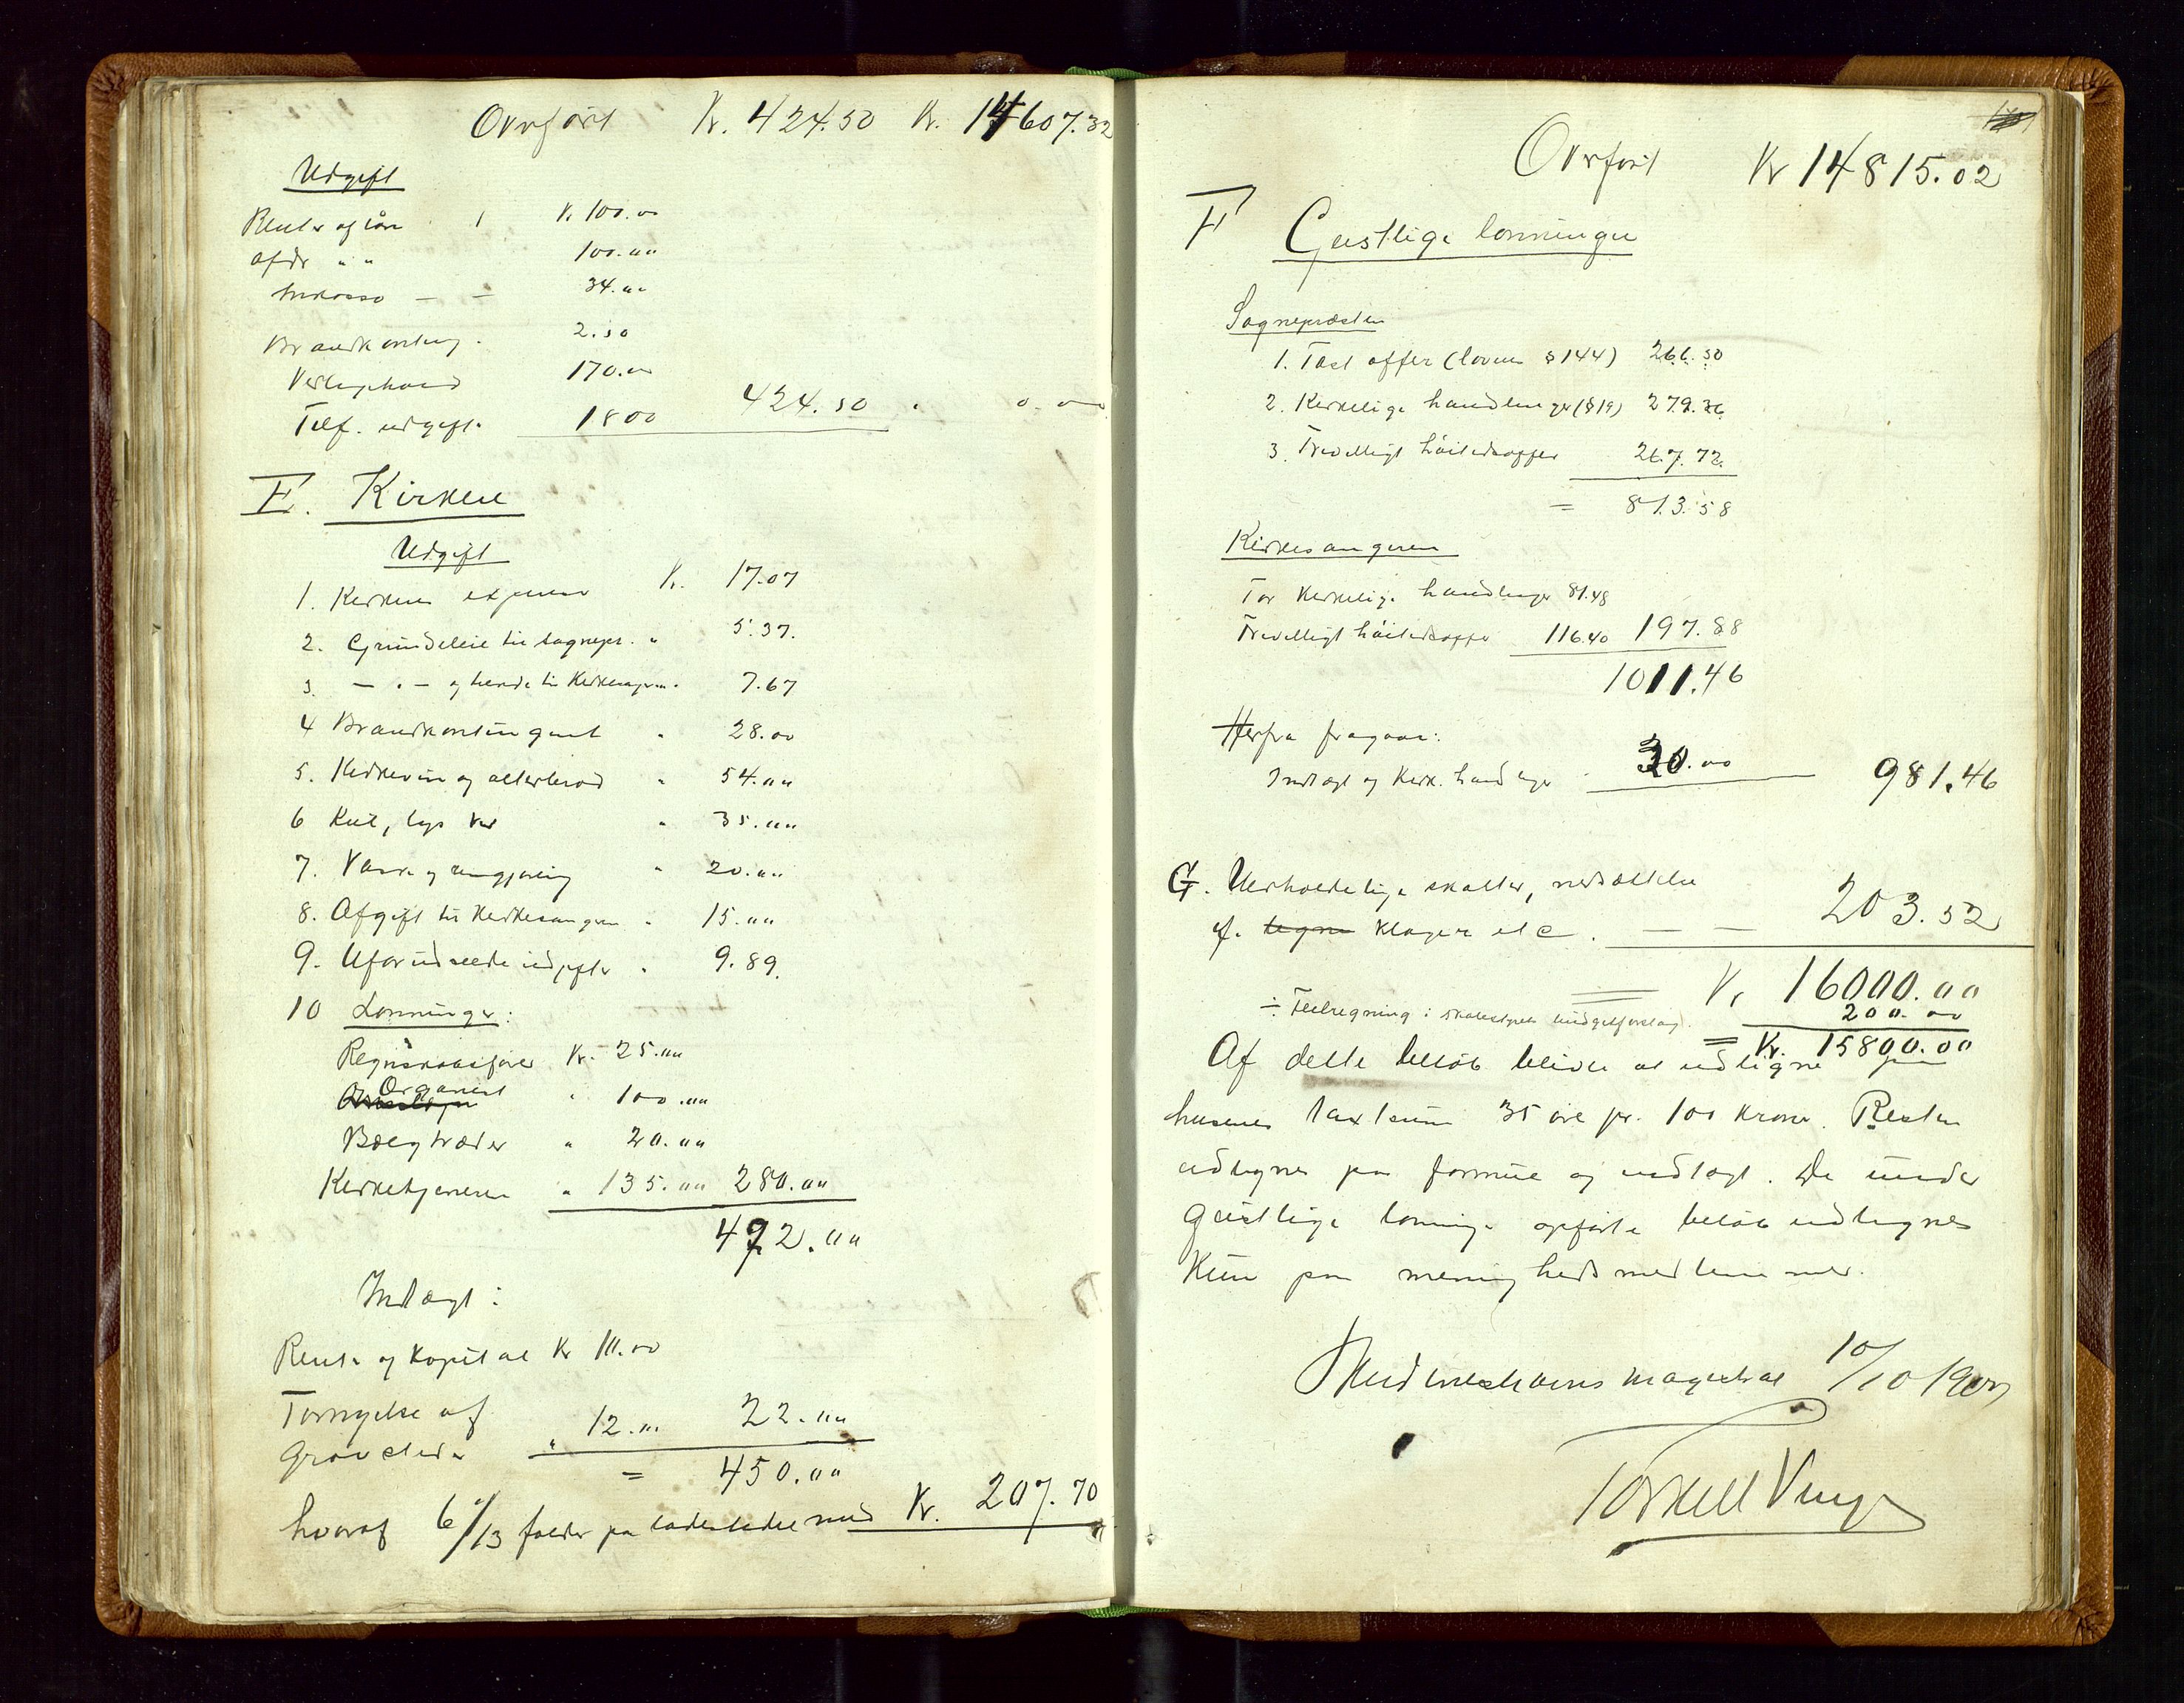 Overført Kr. 424.50 Kr. 14607.32
Udgift
Renter af lån Kr. 100.00
Afdr " " 100.00
Inkasso — — 34.00
Brandkonting. 2.50
170.00
Telf. udgift. 18 00 424.50 " 0.00
E. Kirken
Udgift
1. Kirkens expenser Kr. 17.07
2. Grundleie til sognepr. " 5.37.
3. — " — og tiende til Kirkesangeren " 7.67
4 Brandkontingent " 28.00
5. Kirkevin og alterbrød " 54.00
6 Kul, lys ved " 35.00
7. Vask og rengjøring " 20.00
8. Afgift til Kirkesangeren " 15.00
9. Uforudseede udgifter " 9.89.
10 Lønninger:
Regnskabsfører Kr. 25.00
Organist " 100.00
Bælgtræder " 20.00
Kirketjeneren " 135.00 280.00
472.00
Indtægt:
Rente af Kapital Kr 10.00
Fornyelse af
Gravsteder " 12.00 22.00
= 450.00
hvoraf 6/13 falder på ladestedet med Kr. 207.70
Overført Kr 14815.02
F Geistlige lønninger
Sognepræsten
1. Fast offer (loven § 144) 266.50
2. Kirkelige handlinger (§ 19) 279.36
3. Frivilligt høitidsoffer 267.72
= 813.58
Kirkesangeren
For Kirkelige handlinger 81.48
Frivilligt høitidsoffer 116.40 197.88
1011.46
Herfra fragaar:
Indtægt af Kirk. handlinger 30.00 981.46
G. Uerholdelige skatter, nedsættelse
ef. klager etc. — — 203.52
Kr 16000.00
÷ Feilregning i skatestyrets budgetforslag. 200.00
= Kr. 15800.00
Af dette beløb bliver at udligne paa
husenes taxtsum 35 øre pr. 100 Kroner. Resten
udlignes paa formue og indtægt. De under
Geistlige lønninger opførte beløb udlignes
Kun paa menighedsmedlemmer.
Skudeneshavns magistrat 10/10 1907